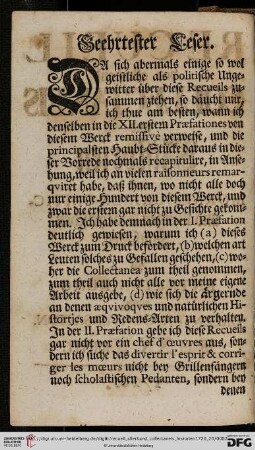 Geehrtester Leser.
DA sich abermals einige so wol
geistliche als politische Unge-
witter über diese Recueils zu-
sammen ziehen, so däucht mir,
ich thue am besten, wann ich
denselben in die XII. erstern Præfationes von
diesem Werck remissivé verweise, und die
principalsten Haubt-Stücke daraus in die-
ser Vorrede nochmals recapitulire, in Anse-
hung, weil ich an vielen raisonneurs remar-
qviret habe, daß ihnen, wo nicht alle doch
nur einige Hundert von diesem Werck, und
zwar die erstern gar nicht zu Gesichte gekom-
men. Ich habe demnach in der I. Præfation
deutlich gewiesen, warum ich (a) dieses
Werck zum Druck befördert, (b) welchen art
Leuten solches zu Gefallen geschehen, (c) wo-
her die Collectanea zum theil genommen,
zum theil auch nicht alle vor meine eigene
Arbeit ausgebe, (d) wie sich die Ärgernde
an denen æqvivoqves und natürlichen Hi-
störtjes und Redens-Arten zu verhalten.
In der II. Præfation gebe ich diese Recueils
gar nicht vor ein chef d'œuvres aus, son-
dern ich suche das divertir l'esprit & corri-
ger les mœurs nicht bey Grillenfängern
noch scholastischen Pedanten, sondern bey
denen
DFG